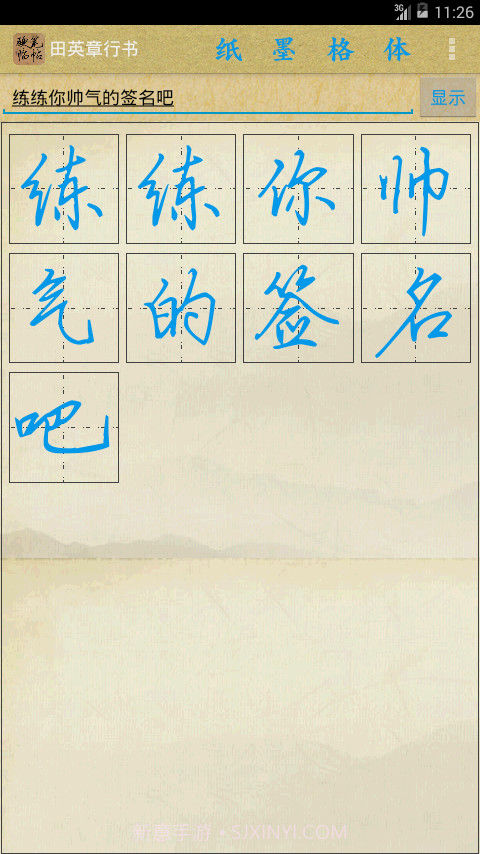 3G 11:26
硬笔临帖 田英章行书 纸 墨 格 体
练练你帅气的签名吧 显示
练练你帅
气的签名
吧
新意手游·SJXINYI.COM